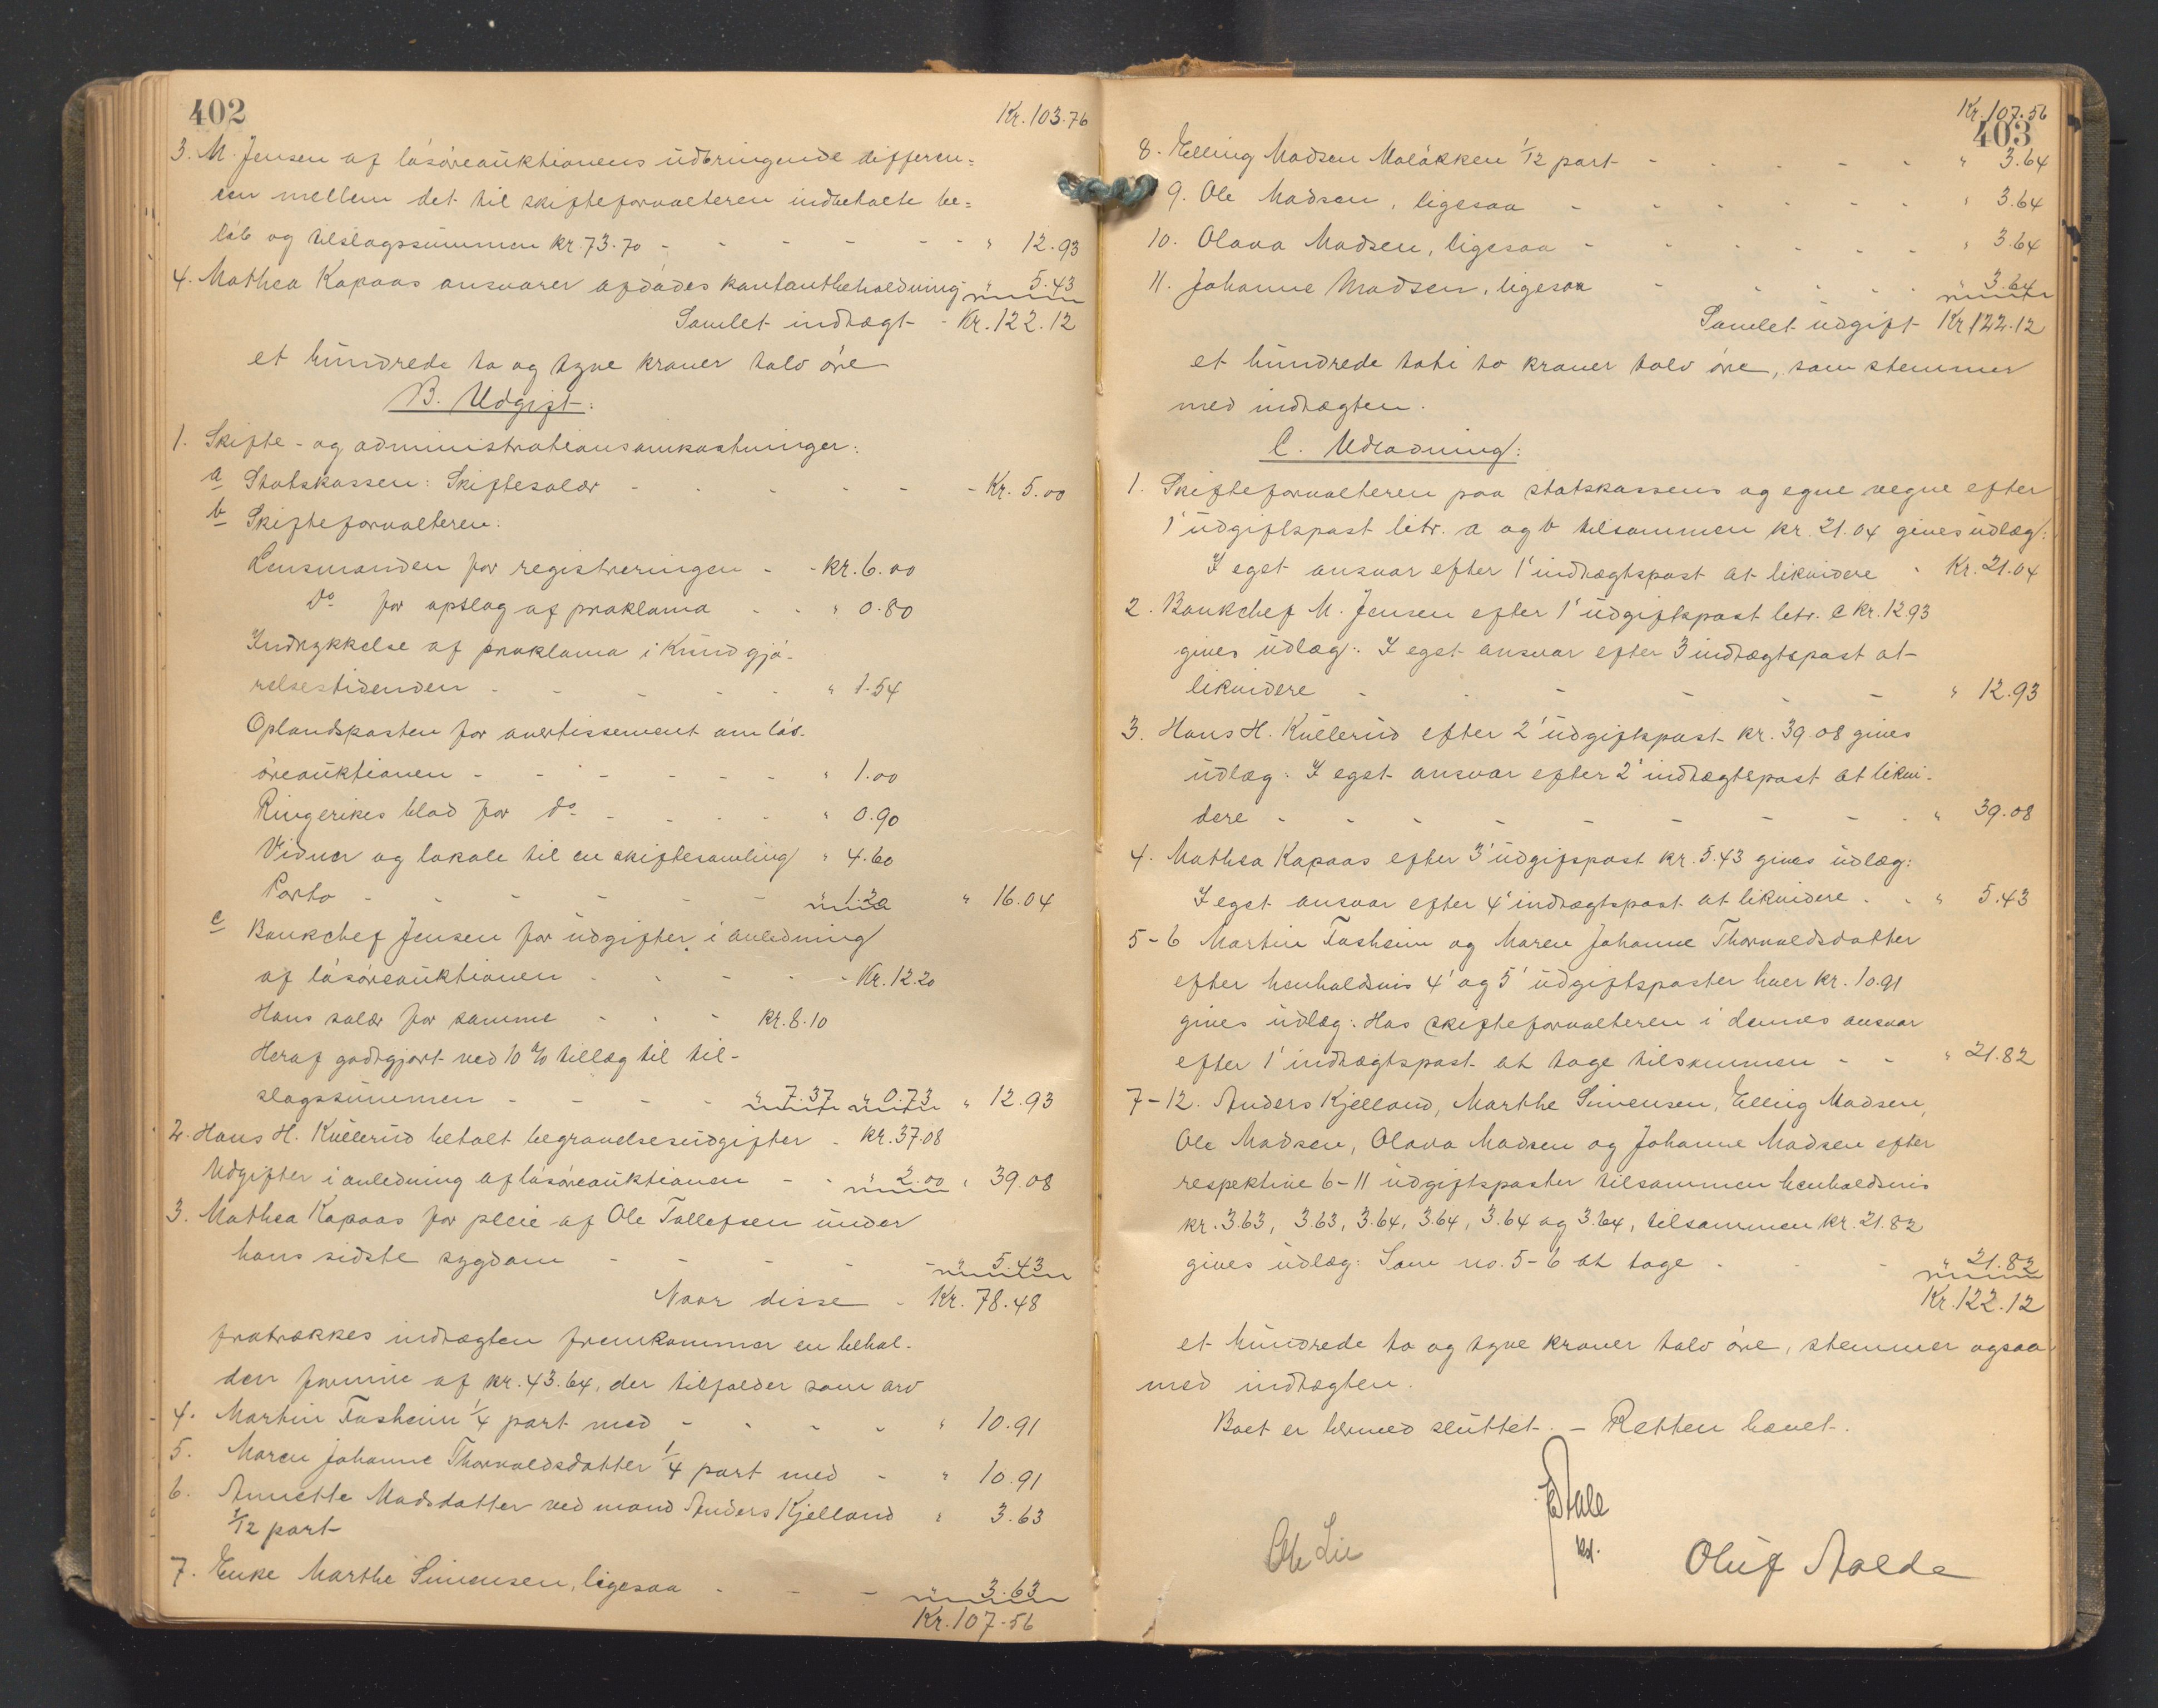 402
Kr. 103.76
3. M. Jensen af løsøreauktionens udbringende differen=
cen mellem det til skifteforvalteren indbetalte be=
løb og tilslagssummen kr. 73.70 - - - - - - " 12.93
4. Mathea Kapaas ansvarer afdødes kontantbeholdning " 5.43
Samlet indtægt - Kr. 122.12
et hundrede to og tyve kroner tolv øre
B. Udgift:
1. Skifte- og administrationsomkostninger:
a Statskassen: Skiftesalær - - - - - - Kr. 5.00
b Skifteforvalteren:
Lensmanden for registreringen - - kr. 6.00
Do for opslag af proklama - - " 0.80
Indrykkelse af proklama i Kundgjø-
relsestidenden - - - - - " 1.54
Oplandsposten for avertissement om løs-
øreauktionen - - - - - - " 1.00
Ringerikes blad for do - - - - " 0.90
Vidner og lokale til en skiftesamling " 4.60
Porto - - - - - - " 1.20 " 16.04
c Bankchef Jensen for udgifter i anledning
af løsøreauktionen - - - - - Kr. 12.20
Hans salær for samme - - - kr. 8.10
Heraf godtgjort ved 10 % tillæg til til-
slagssummen - - - - " 7.37 " 0.73 " 12.93
2. Hans H. Kullerud betalt begravelsesudgifter - kr. 37.08
Udgifter i anledning af løsøreauktionen - - " 2.00 " 39.08
3. Mathea Kapaas for pleie af Ole Tollefsen under
hans sidste sygdom - - - - - " 5.43
Naar disse - Kr. 78.48
fratrækkes indtægten fremkommer en behol-
den formue af kr. 43.64, der tilfalder som arv
4. Martin Fosheim 1/4 part med - - - - " 10.91
5. Maren Johanne Thorvaldsdatter 1/4 part med - " 10.91
6. Annette Madsdatter ved mand Anders Kjelland " 3.63
1/12 part
7. Enke Marthe Simensen, ligesaa - - - " 3.63
Kr. 107.56
Kr. 107.56
403
8. Elling Madsen Moløkken 1/12 part - - - - - " 3.64
9. Ole Madsen, ligesaa - - - - - - " 3.64
10. Olava Madsen, ligesaa - - - - - - " 3.64
11. Johanne Madsen, ligesaa - - - - - " 3.64
Samlet udgift Kr 122.12
et hundrede toti to kroner tolv øre, som stemmer
med indtægten.
C. Udlodning:
1. Skifteforvalteren paa statskassens og egne vegne efter
1' udgiftspost litr. a og b tilsammen kr. 21.04 gives udlæg:
I eget ansvar efter 1' indtægtspost at likvidere - Kr. 21.04
2. Bankchef M. Jensen efter 1' udgiftspost letr. c kr. 12.93
gives udlæg: I eget ansvar efter 3 indtægtspost at
likvidere - - - - - - " 12.93
3. Hans H. Kullerud efter 2' udgiftspost kr. 39.08 gives
udlæg: I eget ansvar efter 2' indtægtspost at likvi-
dere - - - - - - - - " 39.08
4. Mathea Kapaas efter 3' udgifspost kr. 5.43 gives udlæg:
I eget ansvar efter 4' indtægtspost at likvidere - - " 5.43
5-6 Martin Fosheim og Maren Johanne Thorvaldsdatter
efter henholdsvis 4' og 5' udgiftsposter hver kr. 10.91
gives udlæg: Hos skifteforvalteren i dennes ansvar
efter 1' indtægtspost at tage tilsammen - - " 21.82
7-12. Anders Kjelland, Marthe Simensen, Elling Madsen,
Ole Madsen, Olava Madsen og Johanne Madsen efter
respektive 6-11 udgiftsposter tilsammen henholdsvis
kr. 3.63, 3.63, 3.64, 3.64, 3.64 og 3.64, tilsammen kr. 21.82
gives udlæg: Som no. 5-6 at tage - - - " 21.82
Kr. 122.12
et hundrede to og tyve kroner tolv øre, stemmer ogsaa
med indtægten.
Boet er hermed sluttet. - Retten hævet.
Ole Lie
Oluf Aalde